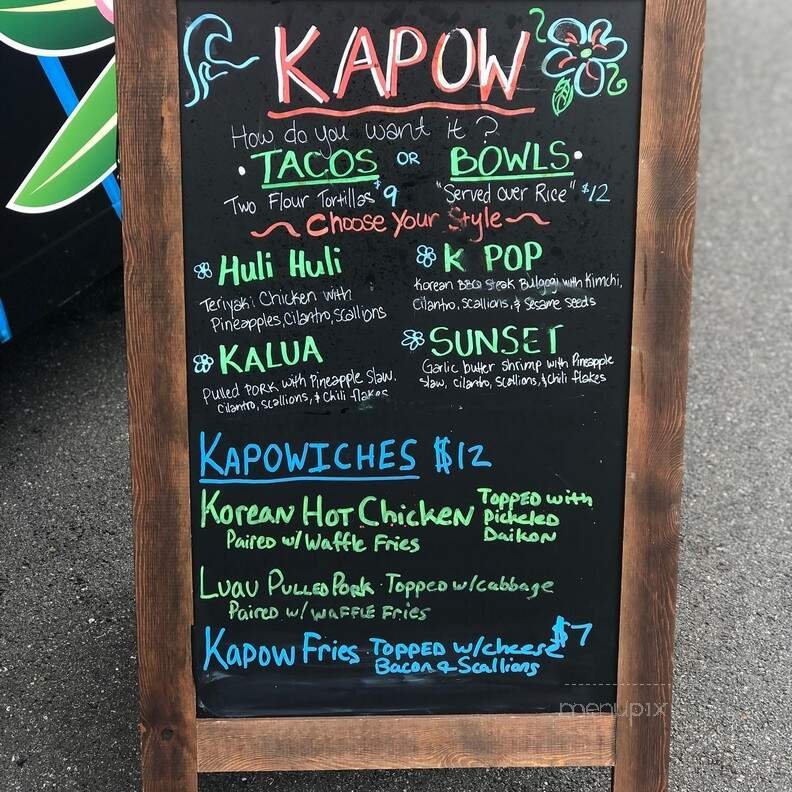 KAPOW
How do you want it?
• TACOS OR BOWLS •
Two Flour Tortillas $9 "Served Over Rice" $12
~ Choose Your Style ~
Huli Huli
Teriyaki Chicken with
Pineapples, Cilantro, Scallions
K POP
Korean BBQ Steak Bulgogi with Kimchi,
Cilantro, Scallions, & Sesame Seeds
KALUA
Pulled PORK with Pineapple Slaw,
Cilantro, Scallions, & Chili flakes
SUNSET
Garlic butter shrimp with Pineapple
slaw, cilantro, scallions, & chili flakes
KAPOWICHES $12
Korean Hot Chicken Topped with
Pickeled
Daikon
Paired w/ Waffle Fries
Luau Pulled Pork • Topped w/cabbage
Paired w/ Waffle Fries
Kapow Fries Topped w/cheese $7
Bacon & Scallions
menupix